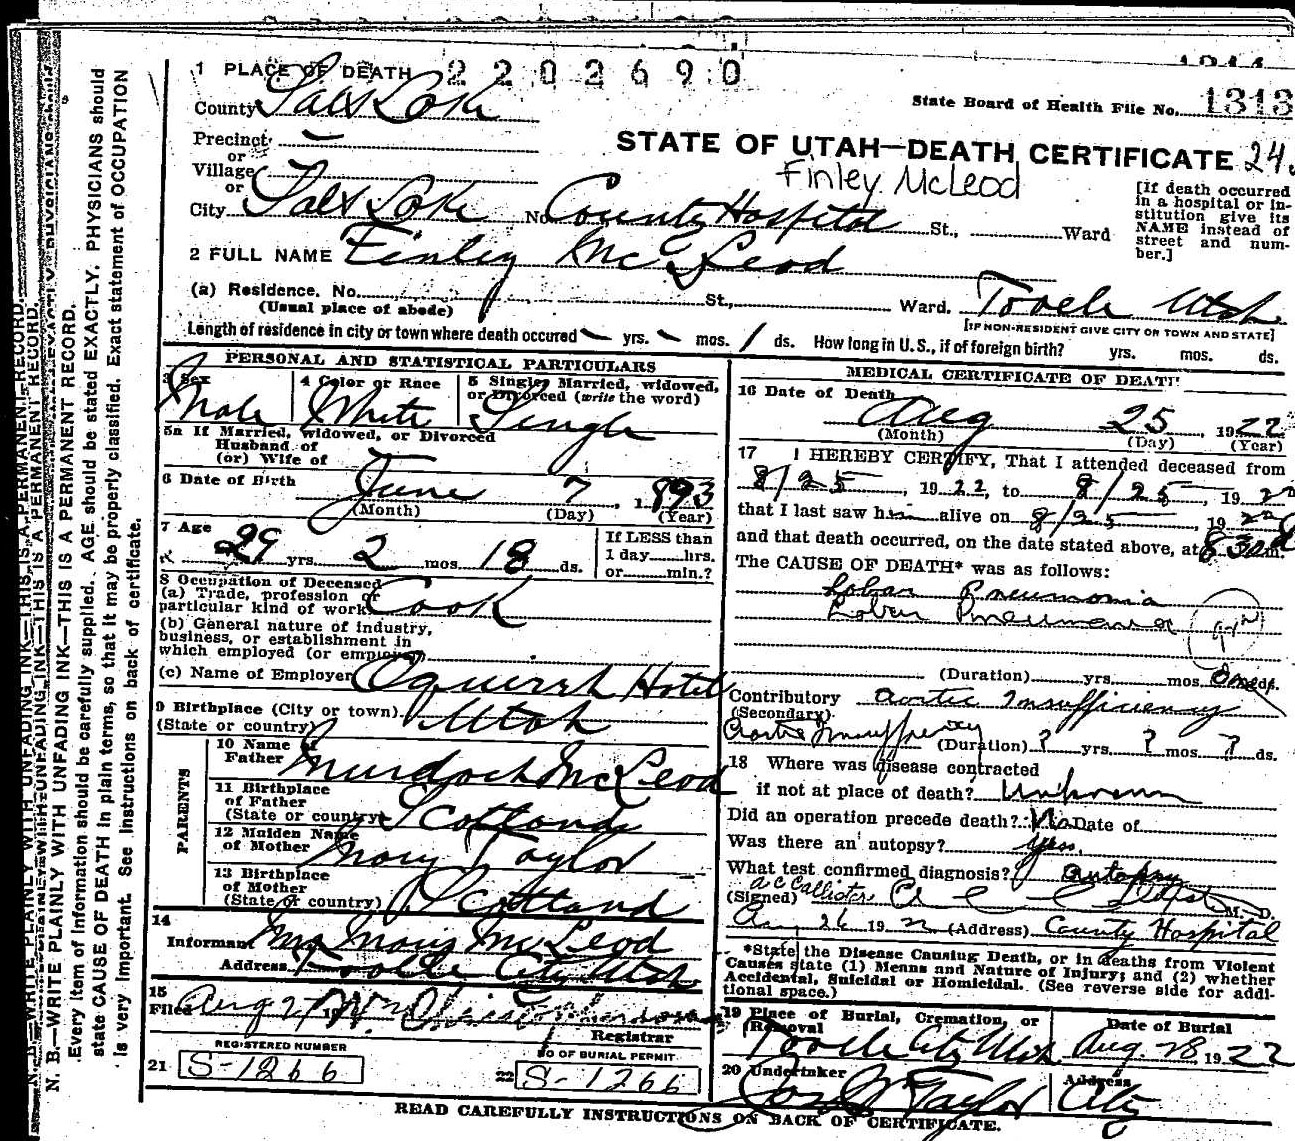 2202690
1 PLACE OF DEATH
County Salt Lake
State Board of Health File No. 1313
Precinct
or
Village
or
STATE OF UTAH—DEATH CERTIFICATE 24
Finley McLeod
City Salt Lake No. County Hospital St., Ward
[If death occurred in a hospital or institution give its NAME instead of street and number.]
2 FULL NAME Finley McLeod
(a) Residence. No. St., Ward. Tooele Utah
(Usual place of abode)
[IF NON-RESIDENT GIVE CITY OR TOWN AND STATE]
Length of residence in city or town where death occured – yrs. – mos. 1 ds. How long in U.S., if of foreign birth? yrs. mos. ds.
PERSONAL AND STATISTICAL PARTICULARS
3 Sex Male
4 Color or Race White
5 Single, Married, widowed, or Divorced (write the word) Single
5a If Married, widowed, or Divorced
Husband of
(or) Wife of
6 Date of Birth June 7, 1893
(Month) (Day) (Year)
7 Age 29 yrs. 2 mos. 18 ds.
If LESS than
1 day hrs.
or min.?
8 Occupation of Deceased
(a) Trade, profession or
particular kind of work Cook
(b) General nature of industry,
business, or establishment in
which employed (or employer)
(c) Name of Employer Oquirrh Hotel
9 Birthplace (City or town)
(State or country) Utah
PARENTS
10 Name of
Father Murdoch McLeod
11 Birthplace
of Father
(State or country) Scotland
12 Maiden Name
of Mother Mary Taylor
13 Birthplace
of Mother
(State or country) Scotland
14
Informant Mrs Mary McLeod
Address Tooele City Utah
15
Filed Aug 27 19
Registrar
REGISTERED NUMBER
21 S-1266
NO OF BURIAL PERMIT
22 S-1266
MEDICAL CERTIFICATE OF DEATH
16 Date of Death
Aug 25, 1922
(Month) (Day) (Year)
17 I HEREBY CERTIFY, That I attended deceased from
8/25, 1922, to 8/25, 1922
that I last saw him alive on 8/25, 1922
and that death occurred, on the date stated above, at 8 30 m.
The CAUSE OF DEATH* was as follows:
Lobar Pneumonia
Lobar Pneumonia
(Duration) yrs. mos. ds.
Contributory Aortic Insufficiency
(Secondary)
Aortic Insufficiency (Duration) ? yrs. ? mos. ? ds.
18 Where was disease contracted
if not at place of death? Unknown
Did an operation precede death? No Date of
Was there an autopsy? yes.
What test confirmed diagnosis? autopsy
(Signed) A C Callister M. D.
26 1922 (Address) County Hospital
*State the Disease Causing Death, or in deaths from Violent
Causes state (1) Menns and Nature of Injury; and (2) whether
Accidental, Suicidal or Homicidal. (See reverse side for addi-
tional space.)
19 Place of Burial, Cremation, or
Removal
Tooele City Utah
Date of Burial
Aug. 28 1922
20 Undertaker
Taylor
Address
City
READ CAREFULLY INSTRUCTIONS ON BACK OF CERTIFICATE.
N. B.—WRITE PLAINLY WITH UNFADING INK—THIS IS A PERMANENT RECORD.
Every item of information should be carefully supplied. AGE should be stated EXACTLY. PHYSICIANS should
state CAUSE OF DEATH in plain terms, so that it may be properly classified. Exact statement of OCCUPATION
is very important. See instructions on back of certificate.